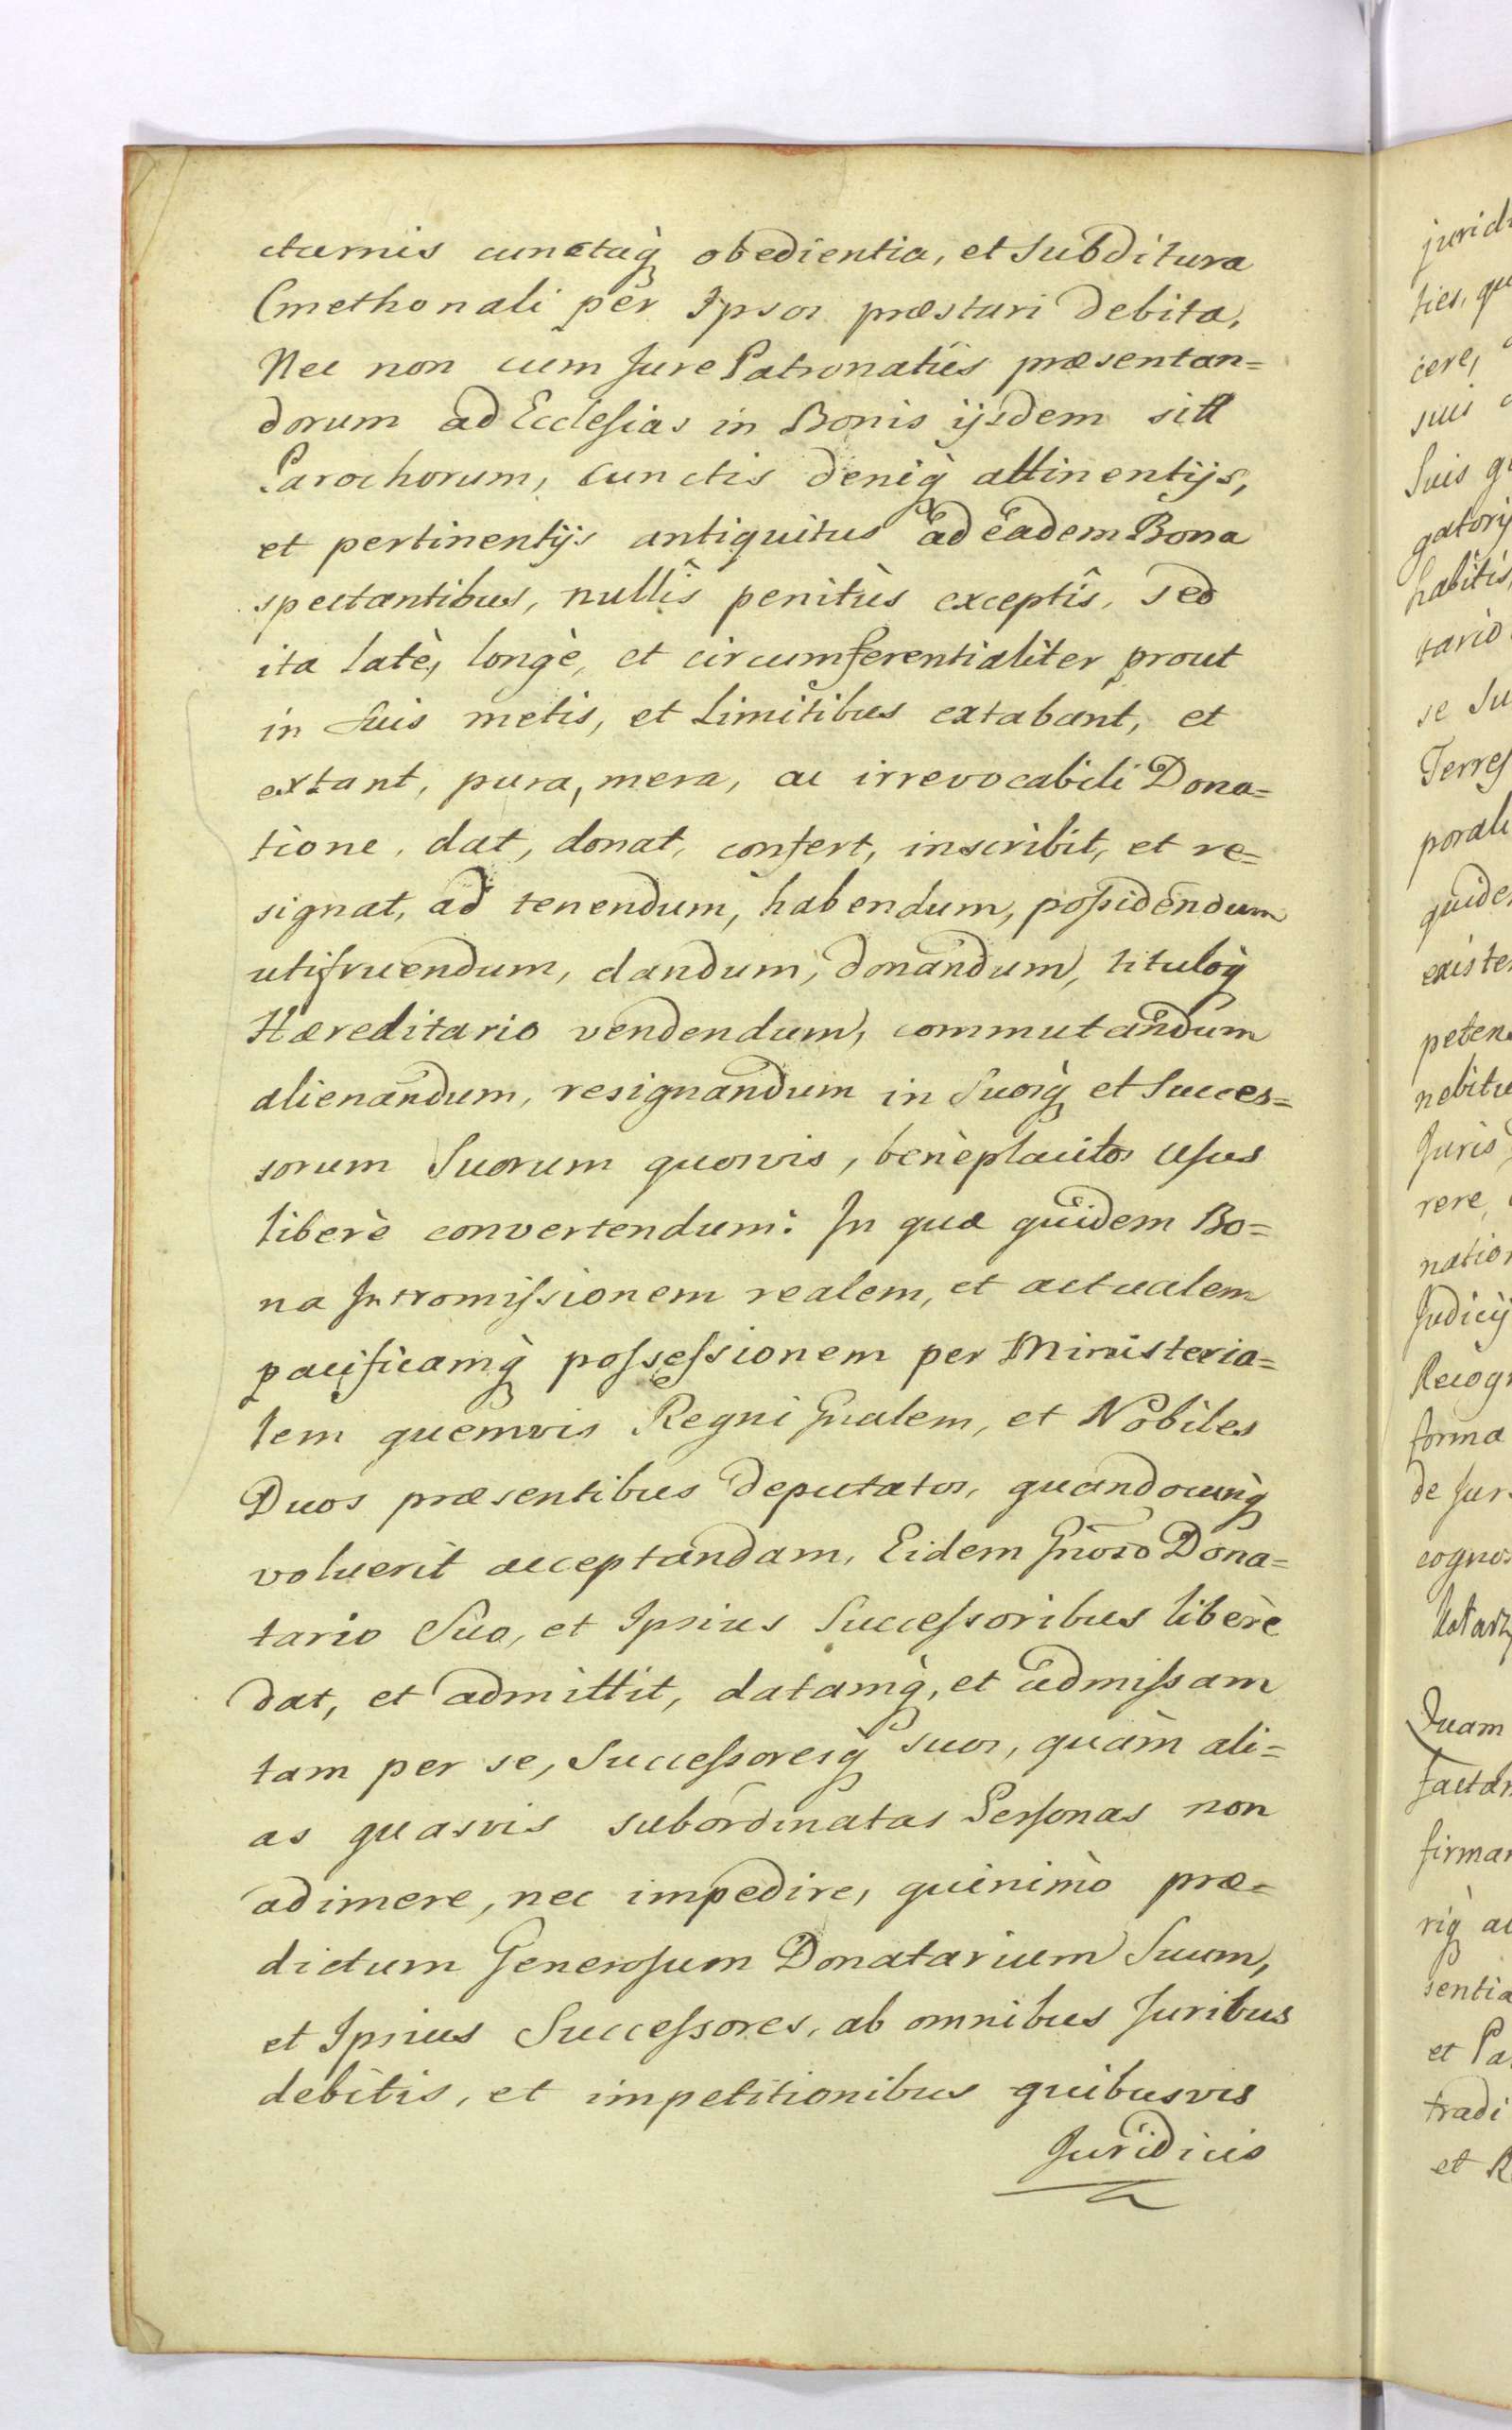 cturnis cunctaq̀ obedientia, et subditura
Cmethonali per Ipsos præstari debita,
Nec non cum Jure Patronatûs præsentan=
dorum ad Ecclesias in Bonis ijsdem sitt
Parochorum, cunctis deniq̀ attinentijs,
et pertinentijs antiquitus ad eadem Bona
spectantibus, nullîs penitùs exceptîs, sed
ita latè, longè, et circumferentialiter prout
in suis metis, et Limitibus extabant, et
extant, pura, mera, ac irrevocabili Dona=
tione, dat, donat, confert, inscribit, et re=
signat, ad tenendum, habendum, possidendum
utifruendum, dandum, donandum, tituloq̀
Hæreditario vendendum, commutandum
alienandum, resignandum in Suosq̀ et Succes=
sorum Suorum quosvis, benèplacitos usus
liberè convertendum: In quæ quidem Bo=
na Intromissionem realem, et actualem
pacificamq̀ possessionem per Ministeria=
lem quemvis Regni Gnalem, et Nobiles
Duos præsentibus deputatos, quandocunq̀
voluerit acceptandam, Eidem Gnoso Dona=
tario Suo, et Ipsius Successoribus liberè
dat, et admittit, datamq̀, et admissam
tam per se, Successoresq̀ suos, quàm ali=
as quasvis subordinatas Personas non
adimere, nec impedire, quinimò præ=
dictum Generosum Donatarium Suum,
et Ipsius Successores, ab omnibus Juribus
debitis, et impetitionibus quibusvis
Juridicis
ties, qu
cere,
suis
gatorij
habitis,
tariò
se Su
Terres
porali
quide
existe
Juris
rere,
nation
Judicij
Recogn
forma
de Jur
cognos
Quam
factam
firmar
sentia
et Pa
tradi
et R